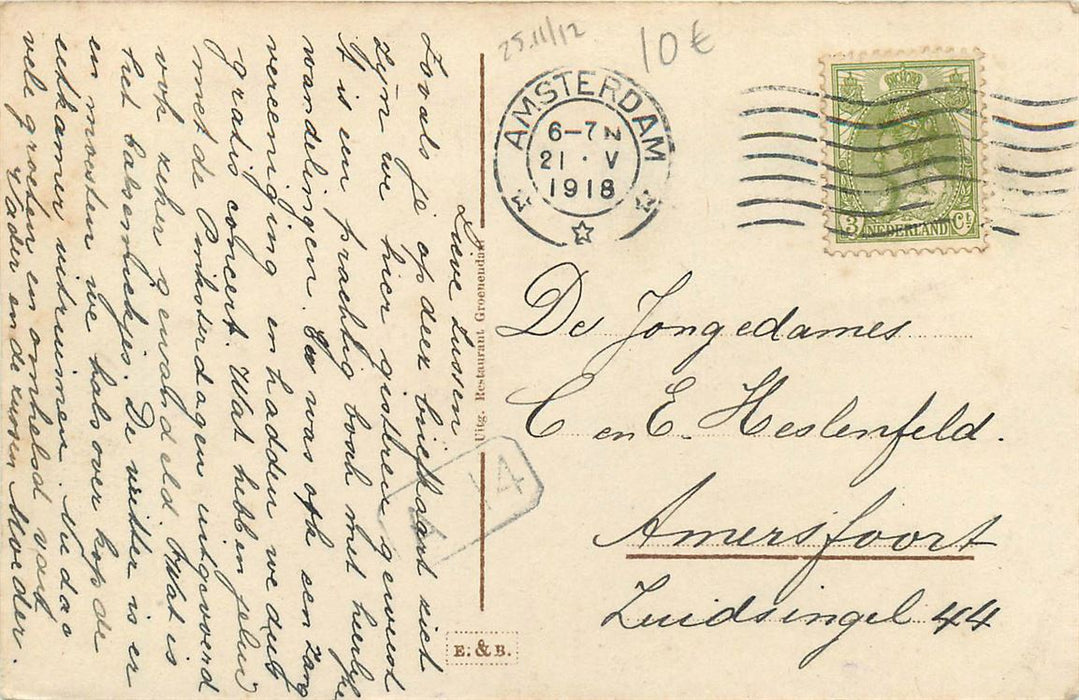 25.11/12
10 €
AMSTERDAM
6-7 N
21 · V
1918
3 Ct
NEDERLAND
Lieve zussen
Zooals je op deze briefkaart ziet
zijn we hier gisteren geweest
't is een prachtig bosch met heerlijke
wandelingen. Er was ook een zang
vereeniging en hadden we dus
gratis concert. Wat hebben jelui
met de Pinksterdagen uitgevoerd
ook zeker gewandeld. Wat is
het
en moesten we hals over kop de
eetkamer uitruimen. Nu dag
vele groeten en omhelsd van
Vader en de zussen Moeder.
Uitg. Restaurant Groenendaal
14
E. & B.
De Jongedames
C en E. Heslenfeld.
Amersfoort
Zuidsingel 44